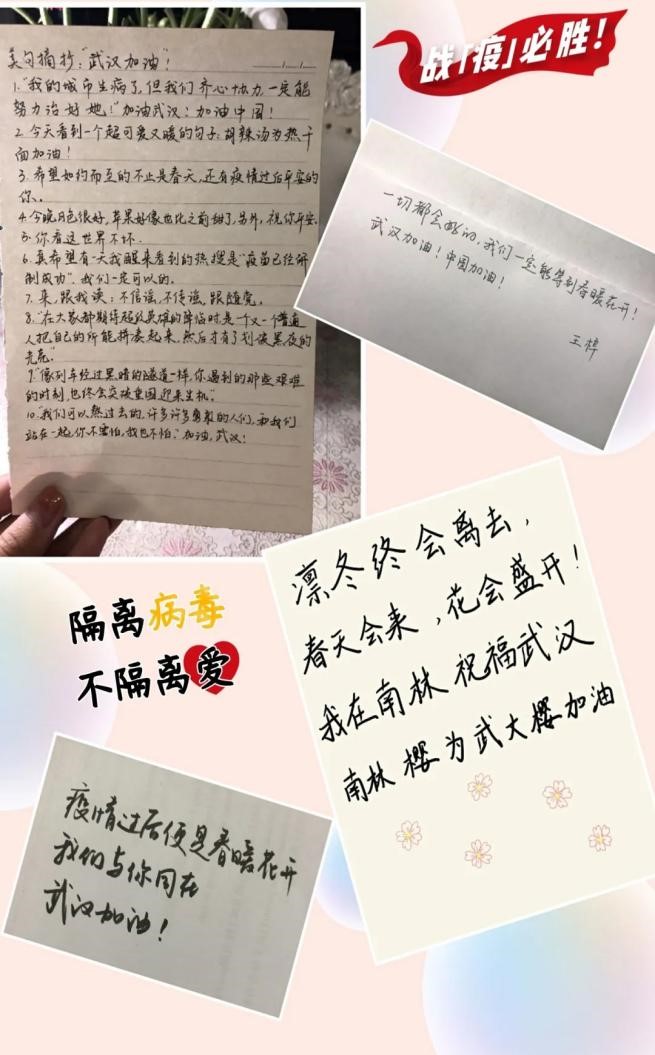 美句摘抄:“武汉加油”!
1.“我的城市生病了,但我们齐心协力,一定能
努力治好她!”加油武汉!加油中国!
2.今天看到一个超可爱又暖的句子:胡辣汤为热干
面加油!
3.希望如约而至的不止是春天,还有疫情过后平安的
你。
4.今晚月色很好,苹果好像也比之前甜了,另外,祝你平安。
5.你看这世界不坏.
6.真希望有一天我醒来看到的热搜是“疫苗已经研
制成功”,我们一定可以的。
7.来,跟我读:不信谣,不传谣,跟随党。
8.“在大家都期待超级英雄的降临时,是一个又一个普通
人把自己的所能拼凑起来,然后才有了划破黑夜的
光亮。”
9.“像列车经过黑暗的隧道一样,你遇到的那些艰难
的时刻,也终会突破重围迎来生机”。
10.“我们可以熬过去的,许多许多勇敢的人们,和我们
站在一起,你不害怕,我也不怕”。加油,武汉!
战「疫」必胜!
一切都会好的,我们一定能等到春暖花开!
武汉加油!中国加油!
王梓
隔离病毒
不隔离爱
凛冬终会离去,
春天会来,花会盛开!
我在南林祝福武汉
南林樱为武大樱加油
疫情过后便是春暖花开
我们与你同在
武汉加油!